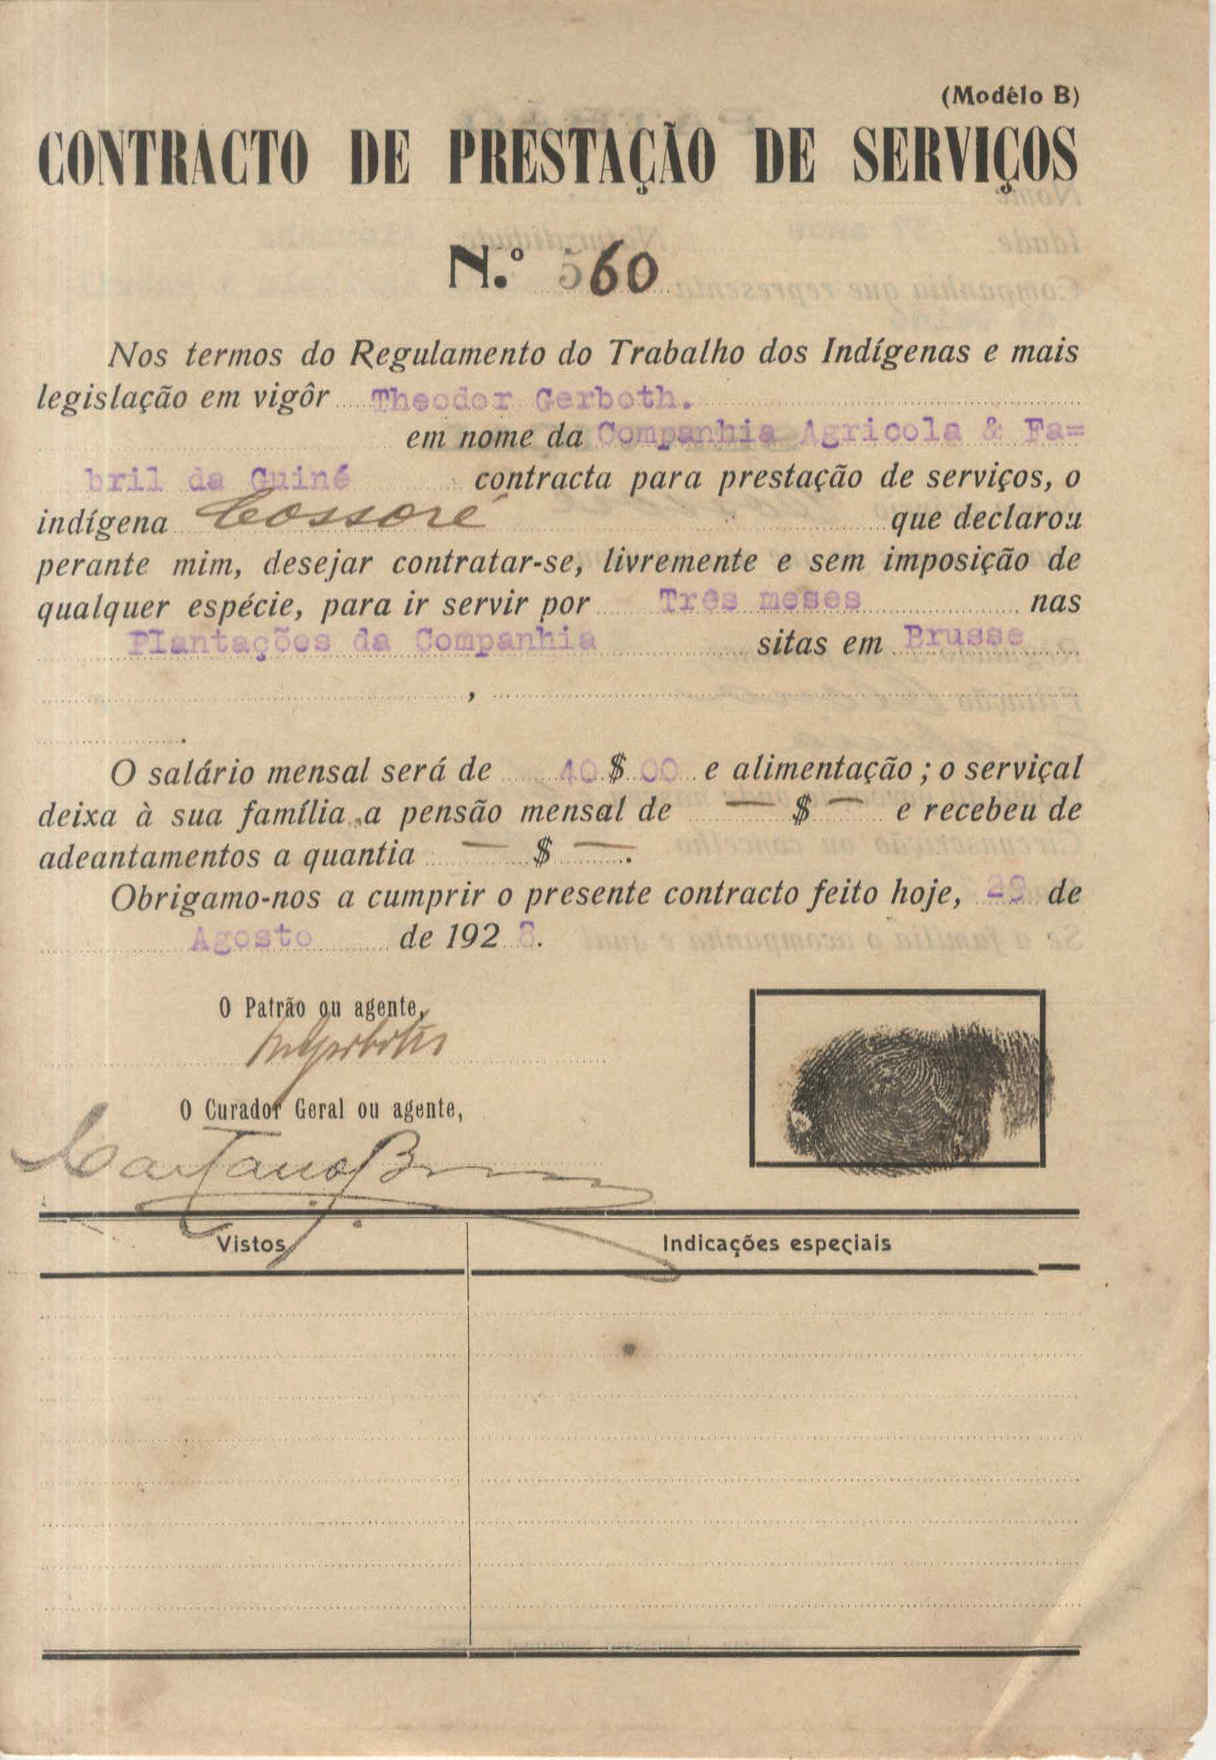 (Modêlo B)
CONTRACTO DE PRESTAÇÃO DE SERVIÇOS
N.º 560
Nos termos do Regulamento do Trabalho dos Indígenas e mais
legislação em vigôr Theodor Gerboth.
em nome da Companhia Agricola & Fa=
bril da Guiné contracta para prestação de serviços, o
indígena Cossoré que declarou
perante mim, desejar contratar-se, livremente e sem imposição de
qualquer espécie, para ir servir por Três meses nas
Plantações da Companhia sitas em Brusse
,
.
O salário mensal será de 40$00 e alimentação; o serviçal
deixa à sua família a pensão mensal de — $ — e recebeu de
adeantamentos a quantia — $ —.
Obrigamo-nos a cumprir o presente contracto feito hoje, 29 de
Agosto de 1928.
O Patrão ou agente,
O Curador Geral ou agente,
Caetano B
Vistos
Indicações especiais